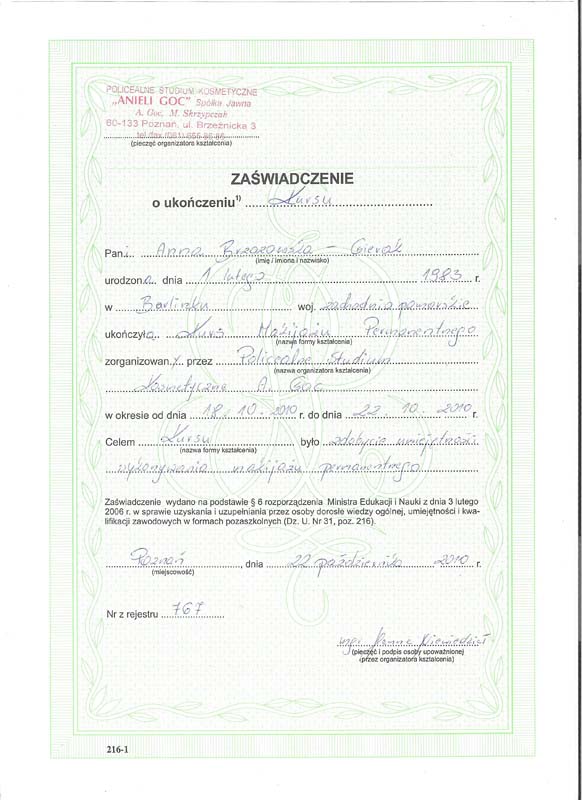 POLICEALNE STUDIUM KOSMETYCZNE
„ANIELI GOC" Spółka Jawna
A. Goc, M. Skrzypczak
60-133 Poznań, ul. Brzeźnicka 3
tel./fax (061)
(pieczęć organizatora kształcenia)
ZAŚWIADCZENIE
o ukończeniu¹) Kursu
Pani Anna Brzozowska - Gierak
(imię / imiona i nazwisko)
urodzona dnia 1 lutego 1983 r.
w Barlinku woj. zachodniopomorskie
ukończyła Kurs Makijażu Permanentnego
(nazwa formy kształcenia)
zorganizowany przez Policealne Studium
(nazwa organizatora kształcenia)
Kosmetyczne A. Goc
w okresie od dnia 18.10.2010 r. do dnia 22.10.2010 r.
Celem Kursu było zdobycie umiejętności
(nazwa formy kształcenia)
wykonywania makijażu permanentnego
Zaświadczenie wydano na podstawie § 6 rozporządzenia Ministra Edukacji i Nauki z dnia 3 lutego
2006 r. w sprawie uzyskania i uzupełniania przez osoby dorosłe wiedzy ogólnej, umiejętności i kwa-
lifikacji zawodowych w formach pozaszkolnych (Dz. U. Nr 31, poz. 216).
Poznań, dnia 22 października 2010 r.
(miejscowość)
Nr z rejestru 767
mgr
(pieczęć i podpis osoby upoważnionej
przez organizatora kształcenia)
216-1